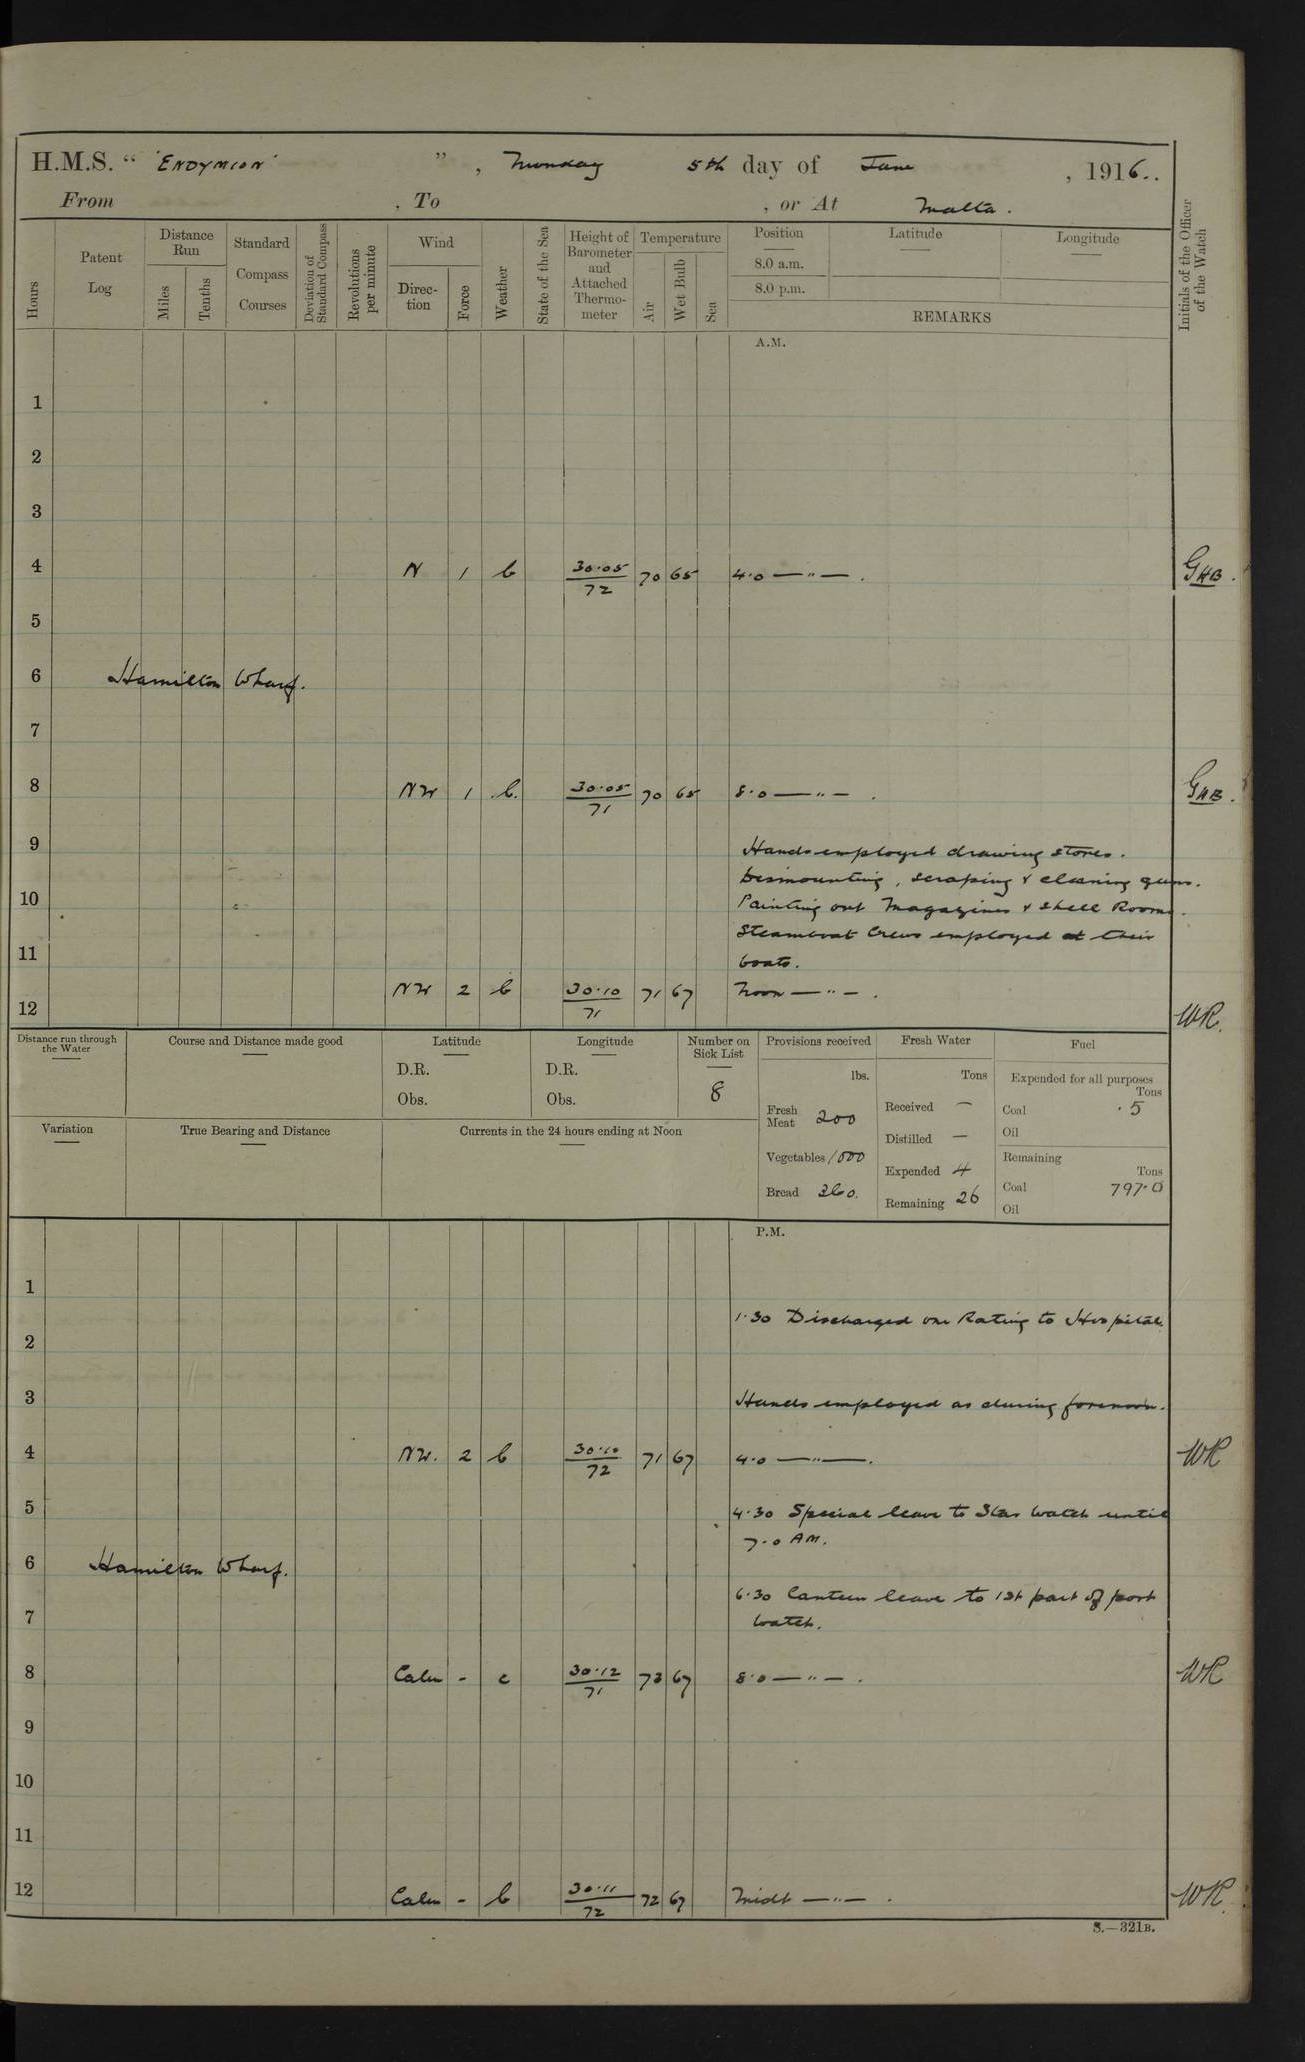 H.M.S. “ 'ENDYMION' ”, Monday 5th day of June , 1916..
From , To , or At Malta.
Hours
Patent Log
Distance Run
Miles
Tenths
Standard Compass Courses
Deviation of Standard Compass
Revolutions per minute
Wind
Direction
Force
Weather
State of the Sea
Height of Barometer and Attached Thermometer
Temperature
Air
Wet Bulb
Sea
Position
8.0 a.m.
8.0 p.m.
Latitude
Longitude
REMARKS
Initials of the Officer of the Watch
A.M.
1
2
3
4 N 1 b 30.05/72 70 65 4.0 —"— . GHB.
5
6 Hamilton Wharf.
7
8 NW 1 b. 30.05/71 70 65 8.0 —"— . GHB.
9 Hands employed drawing stores.
Dismounting, scraping & cleaning guns.
10 Painting out Magazines & Shell Rooms.
Steamboat Crews employed at their
11 boats.
12 NW 2 b 30.10/71 71 67 Noon —"— . WR.
Distance run through the Water
Course and Distance made good
Latitude
D.R.
Obs.
Longitude
D.R.
Obs.
Number on Sick List
8
Provisions received
lbs.
Fresh Meat 200
Vegetables 1000
Bread 360.
Fresh Water
Tons
Received —
Distilled —
Expended 4
Remaining 26
Fuel
Expended for all purposes
Tons
Coal .5
Oil
Remaining
Tons
Coal 797.0
Oil
Variation
True Bearing and Distance
Currents in the 24 hours ending at Noon
P.M.
1
1.30 Discharged one Rating to Hospital.
2
3 Hands employed as during forenoon.
4 NW. 2 b 30.10/72 71 67 4.0 —"—. WR
5 4.30 Special leave to Star Watch until
7.0 AM.
6 Hamilton Wharf.
6.30 Canteen leave to 1st part of port
7 watch.
8 Calm - c 30.12/71 73 67 8.0 —"— . WR
9
10
11
12 Calm - b 30.11/72 72 67 Midt —"— . WR.
S.—321B.